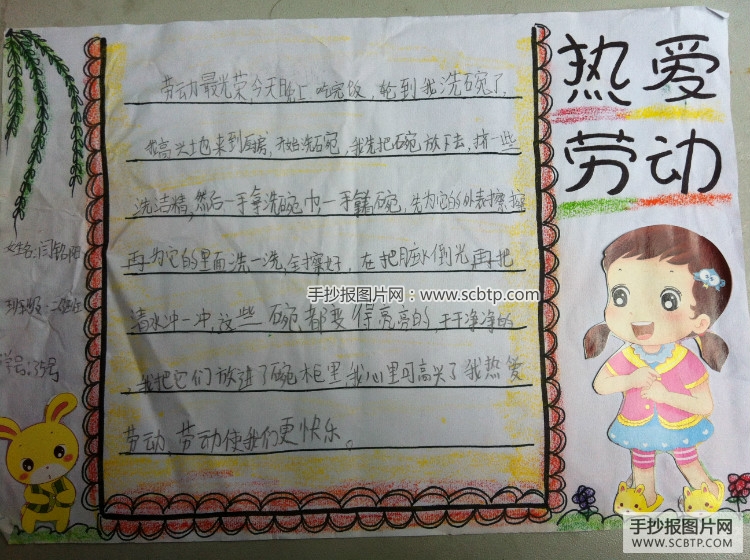 热爱
劳动
劳动最光荣,今天晚上吃完饭,轮到我洗碗了,
我高兴地来到厨房,开始洗碗,我先把碗放下去,挤一些
洗洁精,然后一手拿洗碗巾一手拿着碗,先为它的外表擦擦
再为它的里面洗一洗,全擦好,在把脏水倒光再把
清水冲一冲,这些碗都变得亮亮的,干干净净的
,我把它们放进了碗柜里,我心里可高兴了我热爱
劳动,劳动使我们更快乐。
姓名:闫铭阳
班级:二
学号:35号
手抄报图片网:www.scbtp.com
手抄报图片网
WWW.SCBTP.COM